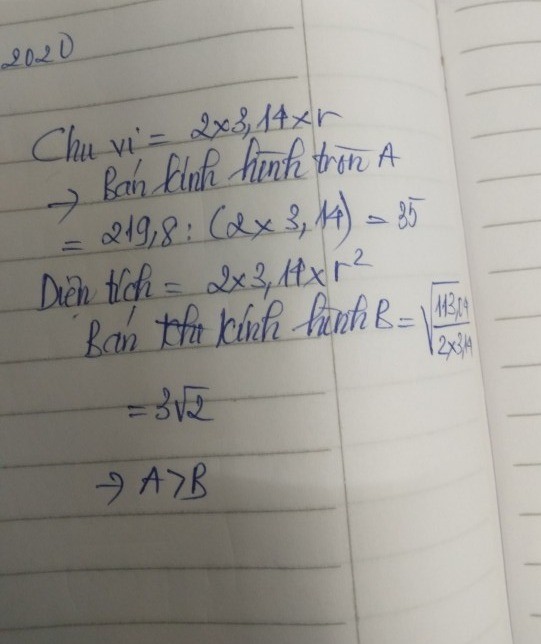 2020
Chu vi = 2x3,14xr
→ Bán kính hình tròn A
= 219,8 : (2x3,14) = 35
Diện tích = 2x3,14xr²
Bán kính hình B = √113,04/2x3,14
= 3√2
→ A>B